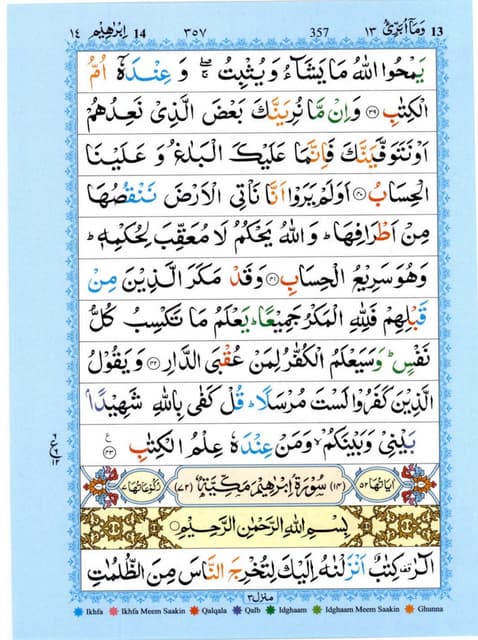 وَمَآ اُبَرِّئُ ١٣ 13
357
٣٥٧
اِبْرٰهِيْم ١٤ 14
يَمْحُوا اللّٰهُ مَا يَشَآءُ وَيُثْبِتُ ۖۚ وَ عِنْدَهٗٓ اُمُّ
الْكِتٰبِ ﴿٣٩﴾ وَاِنْ مَّا نُرِيَنَّكَ بَعْضَ الَّذِيْ نَعِدُهُمْ
اَوْ نَتَوَفَّيَنَّكَ فَاِنَّمَا عَلَيْكَ الْبَلٰغُ وَ عَلَيْنَا
الْحِسَابُ ﴿٤٠﴾ اَوَلَمْ يَرَوْا اَنَّا نَاْتِي الْاَرْضَ نَنْقُصُهَا
مِنْ اَطْرَافِهَا ؕ وَاللّٰهُ يَحْكُمُ لَا مُعَقِّبَ لِحُكْمِهٖ ؕ
وَهُوَ سَرِيْعُ الْحِسَابِ ﴿٤١﴾ وَقَدْ مَكَرَ الَّذِيْنَ مِنْ
قَبْلِهِمْ فَلِلّٰهِ الْمَكْرُ جَمِيْعًا ؕ يَعْلَمُ مَا تَكْسِبُ كُلُّ
نَفْسٍ ؕ وَسَيَعْلَمُ الْكُفّٰرُ لِمَنْ عُقْبَى الدَّارِ ﴿٤٢﴾ وَيَقُوْلُ
الَّذِيْنَ كَفَرُوْا لَسْتَ مُرْسَلًا ؕ قُلْ كَفٰى بِاللّٰهِ شَهِيْدًۢا
بَيْنِيْ وَبَيْنَكُمْ ۙ وَمَنْ عِنْدَهٗ عِلْمُ الْكِتٰبِ ﴿٤٣﴾
اٰيَاتُهَا ٥٢ ﴿١٤﴾ سُوْرَةُ اِبْرٰهِيْمَ مَكِّيَّةٌ ﴿٧٢﴾ رُكُوْعَاتُهَا ٧
بِسْمِ اللّٰهِ الرَّحْمٰنِ الرَّحِيْمِ
الٓرٰ ۟ كِتٰبٌ اَنْزَلْنٰهُ اِلَيْكَ لِتُخْرِجَ النَّاسَ مِنَ الظُّلُمٰتِ
منزل ٣
Ikhfa Ikhfa Meem Saakin Qalqala Qalb Idghaam Idghaam Meem Saakin Ghunna